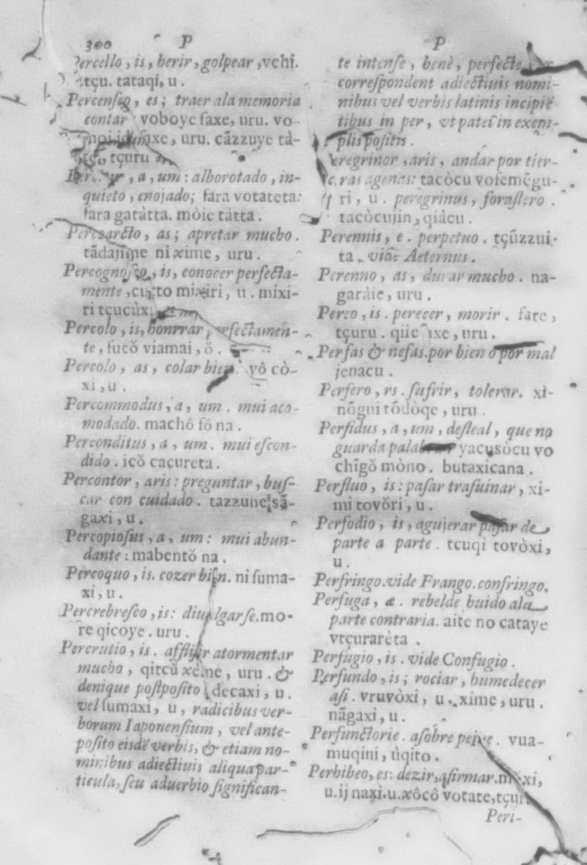 300 P
Percello, is, herir, golpear, vchi.
tçu. tataqi, u.
Percenseo, es; traer ala memoria
contar voboye faxe, uru. vo-
uru. cãzzuye tã-
tçuru
, a, um: alborotado, in-
quieto, enojado; fara votateta:
fara gatàtta. mòic tàtta.
as; apretar mucho.
tãdajime ni xime, uru.
Percognosco, is, conocer perfecta-
mente, mixiri, u. mixi-
ri tçucùxi
Percolo, is, honrrar, perfectamen-
te, fucŏ viamai, ŏ.
Percolo, as, colar bien. yŏ cò-
xi, u.
Percommodus, a, um. mui aco-
modado. machŏ fŏ na.
Perconditus, a, um. mui escon-
dido. icŏ cacureta.
Percontor, aris: preguntar, bus-
car con cuidado. tazzune, sã-
gaxi, u.
Percopiosus, a, um: mui abun-
dante: mabentŏ na.
Percoquo, is. cozer bien. ni fuma-
xi, u.
Percrebresco, is: diuulgarse. mo-
re qicoye. uru.
Percrutio, is. affligir atormentar
mucho, qitçũ xeme, uru. &
denique postposito decaxi, u.
vel fumaxi, u, radicibus ver-
borum Iaponensium, vel ante-
posito eisdẽ verbis, & etiam no-
minibus adiectiuis aliqua par-
ticula, seu aduerbio significan-
P
te intense, benè, perfectè,
correspondent adiectiuis nomi-
nibus vel verbis latinis incipiẽ
tibus in per, vt patet in exem-
plis positis.
Peregrinor, aris, andar por tier-
ras agenas: tacòcu vofemẽgu-
ri, u. peregrinus, forastero.
tacòcujin, qiàcu.
Perennis, e. perpetuo. tçũzzui-
ta. vide Aeternus.
Perenno, as, durar mucho. na-
garàie, uru.
Pereo, is. perecer, morir. fate,
tçuru. uru.
Perfas & nefas. por bien ò por mal
jenacu.
Perfero, rs. sufrir, tolerar. xi-
nŏgui tòdòqe, uru.
Perfidus, a, um, desleal, que no
guarda palabra yacusòcu vo
chigŏ mòno. butaxicana.
Perfluo, is: pasar trasuinar, xi-
mi tovŏri, u.
Perfodio, is, agujerar pasar de
parte a parte. tçuqi tovòxi,
u.
Perfringo. vide Frango. confringo.
Perfuga, æ. rebelde huido ala
parte contraria. aite no cataye
vtçuràreta.
Perfugio, is. vide Confugio.
Perfundo, is; rociar, humedecer
asi. vruvòxi, u, xime, uru.
nãgaxi, u.
Perfunctorie. asobre peine. vua-
muqini, ũqito.
Perhibeo, es: dezir, afirmar. mŏxi,
u. ij naxi. u. xŏcŏ votate, tçuru
Peri-